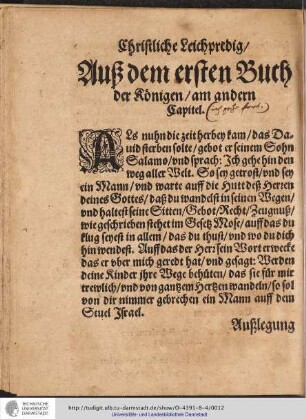 Christliche Leichpredig/
Auß dem ersten Buch
der Königen/ am andern
Capitel.
ALs nuhn die zeit herbey kam/ das Da-
uid sterben solte/ gebot er seinem Sohn
Salamo/ vnd sprach: Ich gehe hin den
weg aller Welt. So sey getrost/ vnd sey
ein Mann/ vnd warte auff die Hutt deß Herren
deines Gottes/ daß du wandelst in seinen Wegen/
vnd haltest seine Sitten/ Gebot/ Recht/ Zeugnuß/
wie geschrieben stehet im Gesetz Mose/ auff das du
klug seyest in allem/ das du thust/ vnd wo du dich
hin wendest. Auff das der Herr sein Wort erwecke
das er vber mich geredt hat/ vnd gesagt: Werden
deine Kinder ihre Wege behüten/ das sie für mir
trewlich/ vnd von gantzem Hertzen wandeln/ so sol
von dir nimmer gebrechen ein Mann auff dem
Stuel Israel.
Außlegung
TECHNISCHE
UNIVERSITÄT
DARMSTADT
http://tudigit.ulb.tu-darmstadt.de/show/O-4391-8-4/0012
Universitäts- und Landesbibliothek Darmstadt